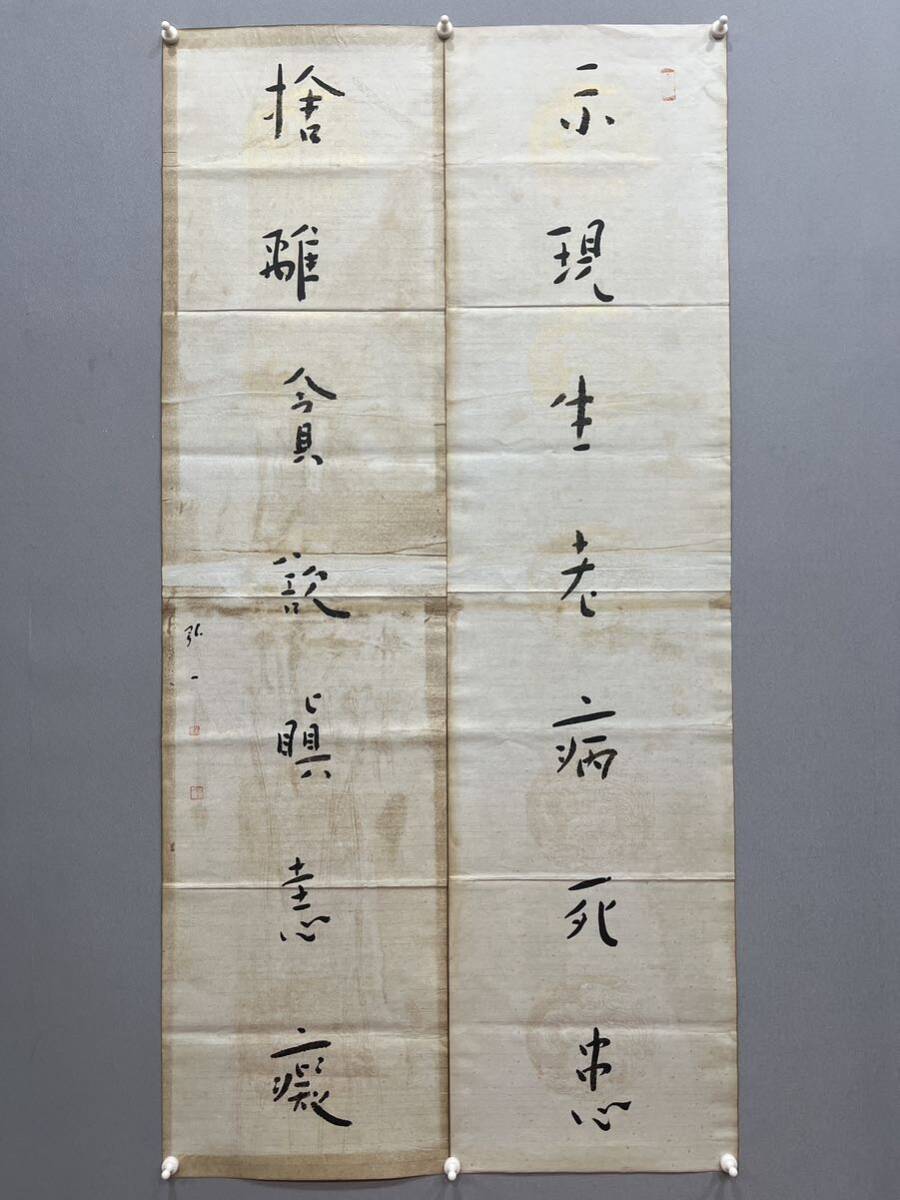 示現生老病死患
捨離貪欲瞋恚癡
弘一